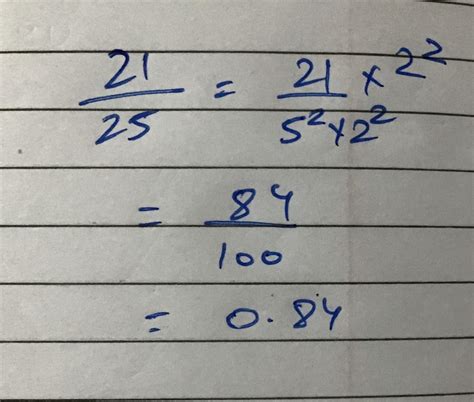 21/25 = 21 × 2²/5² × 2²
= 84/100
= 0.84